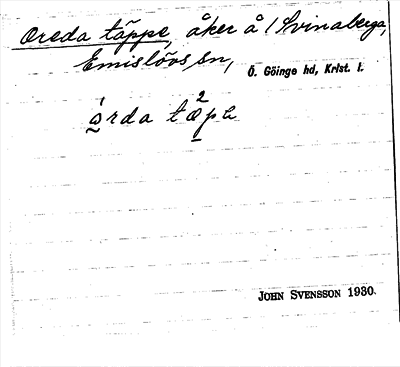 Oreda täppe, åker å 1 Svinaberga,
Emislövs sn, Ö. Göinge hd, Krist. l.
JOHN SVENSSON 1930.